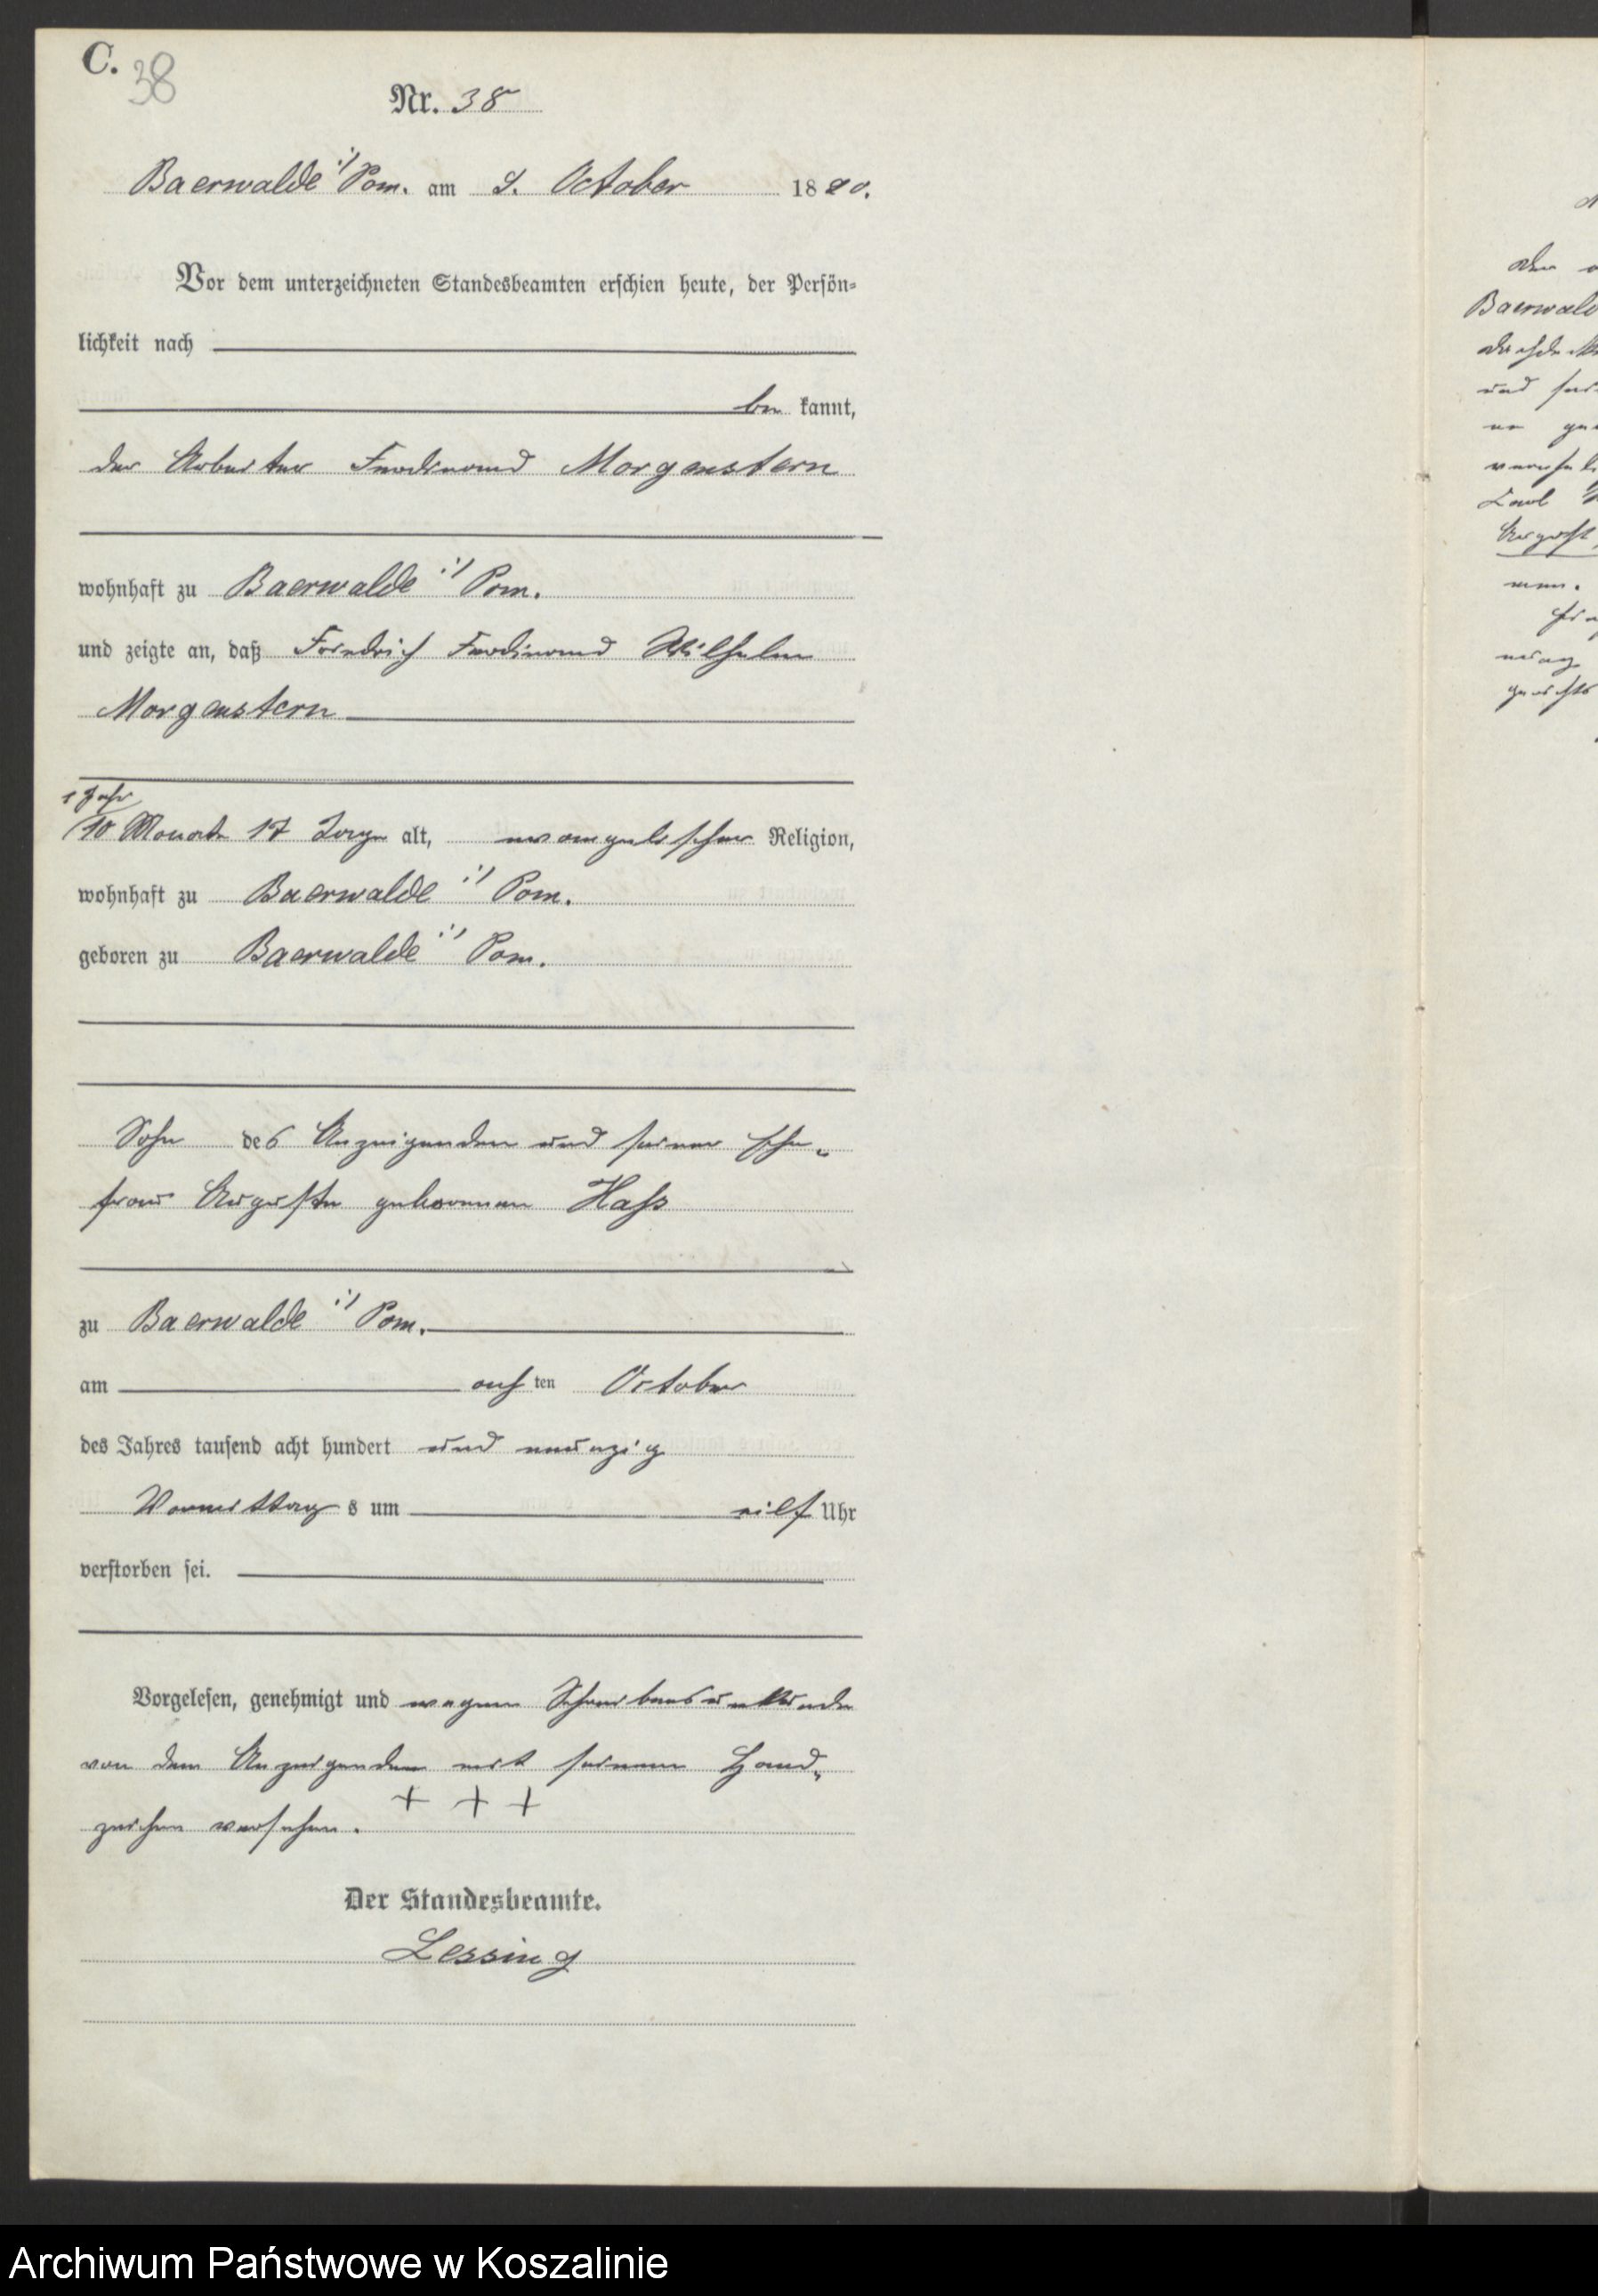 C.
38
Nr. 38
Baerwalde i/ Pom. am 9. October 1890.
Vor dem unterzeichneten Standesbeamten erschien heute, der Persön-
lichkeit nach
be kannt,
der Arbeiter Ferdinand Morgenstern
wohnhaft zu Baerwalde i/ Pom.
und zeigte an, daß Friedrich Ferdinand Wilhelm
Morgenstern
1 Jahr
10 Monate 17 Tage alt, evangelischer Religion,
wohnhaft zu Baerwalde i/ Pom.
geboren zu Baerwalde i/ Pom.
Sohn des Anzeigenden und seiner Ehe-
frau Auguste geborenen Hass
zu Baerwalde i/ Pom.
am acht ten October
des Jahres tausend acht hundert und neunzig
Vormittag s um elf Uhr
verstorben sei.
Vorgelesen, genehmigt und wegen Schreibensunkunde
von dem Anzeigenden mit seinem Hand-
zeichen versehen. + + +
Der Standesbeamte.
Lessing
der
Baerwald
und
Carl
August
Archiwum Państwowe w Koszalinie